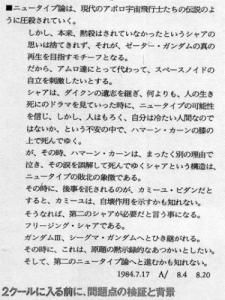 ■ニュータイプ論は、現代のアポロ宇宙飛行士たちの伝説のよ
うに圧殺されていく。
しかし、本来、黙殺されはなかったというシャアの
思いは捨てきれず、それが、ゼーター・ガンダムの真の
再生を目指すモチーフとなる。
だから、アムロ達にとって代って、スペースノイドの
自立を刺激したいとする。
シャアは、ダイクンの遺志を継ぎ、何よりも、人の生き
死にのドラマを見ていった時に、ニュータイプの可能性
を信じ、しかし、人はもろく、自分は冷たい人間なので
はないか、という不安の中で、ハマーン・カーンの膝の
上で死んでゆく。
が、その時、ハマーン・カーンは、まったく別の理由で
泣き、その涙を誤解して死んでゆくシャアという構造は、
ニュータイプの敗北の象徴である。
その時に、後事を託されるのが、カミーユ・ビダンだと
すると、カミーユは、自爆作用を示すかも知れない。
そうなれば、第二のシャアが必要だと言う事になる。
フリージング・シャアである。
ガンダムⅢ、シーグマ・ガンダムへとひき継がれる。
その時に、これは、原題の黙示録的なあつかいとしたい。
そして、第二のニュータイプ論へと進むかも知れない。
1984.7.17 A/ 8.4 8.20
2クールに入る前に、問題点の検証と背景